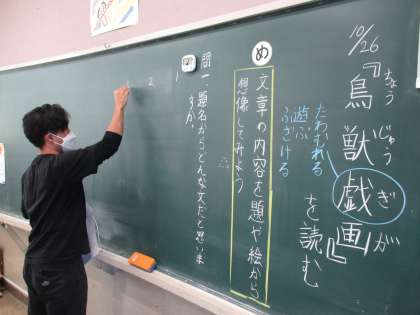 10/26
『鳥獣戯画』を読む
じゅう
ぎ
が
たわむれる
遊ぶ
ふざける
め
文章の内容を題や絵から
想像してみよう
問一 題名からどんな文だと思いま
すか。
1
2